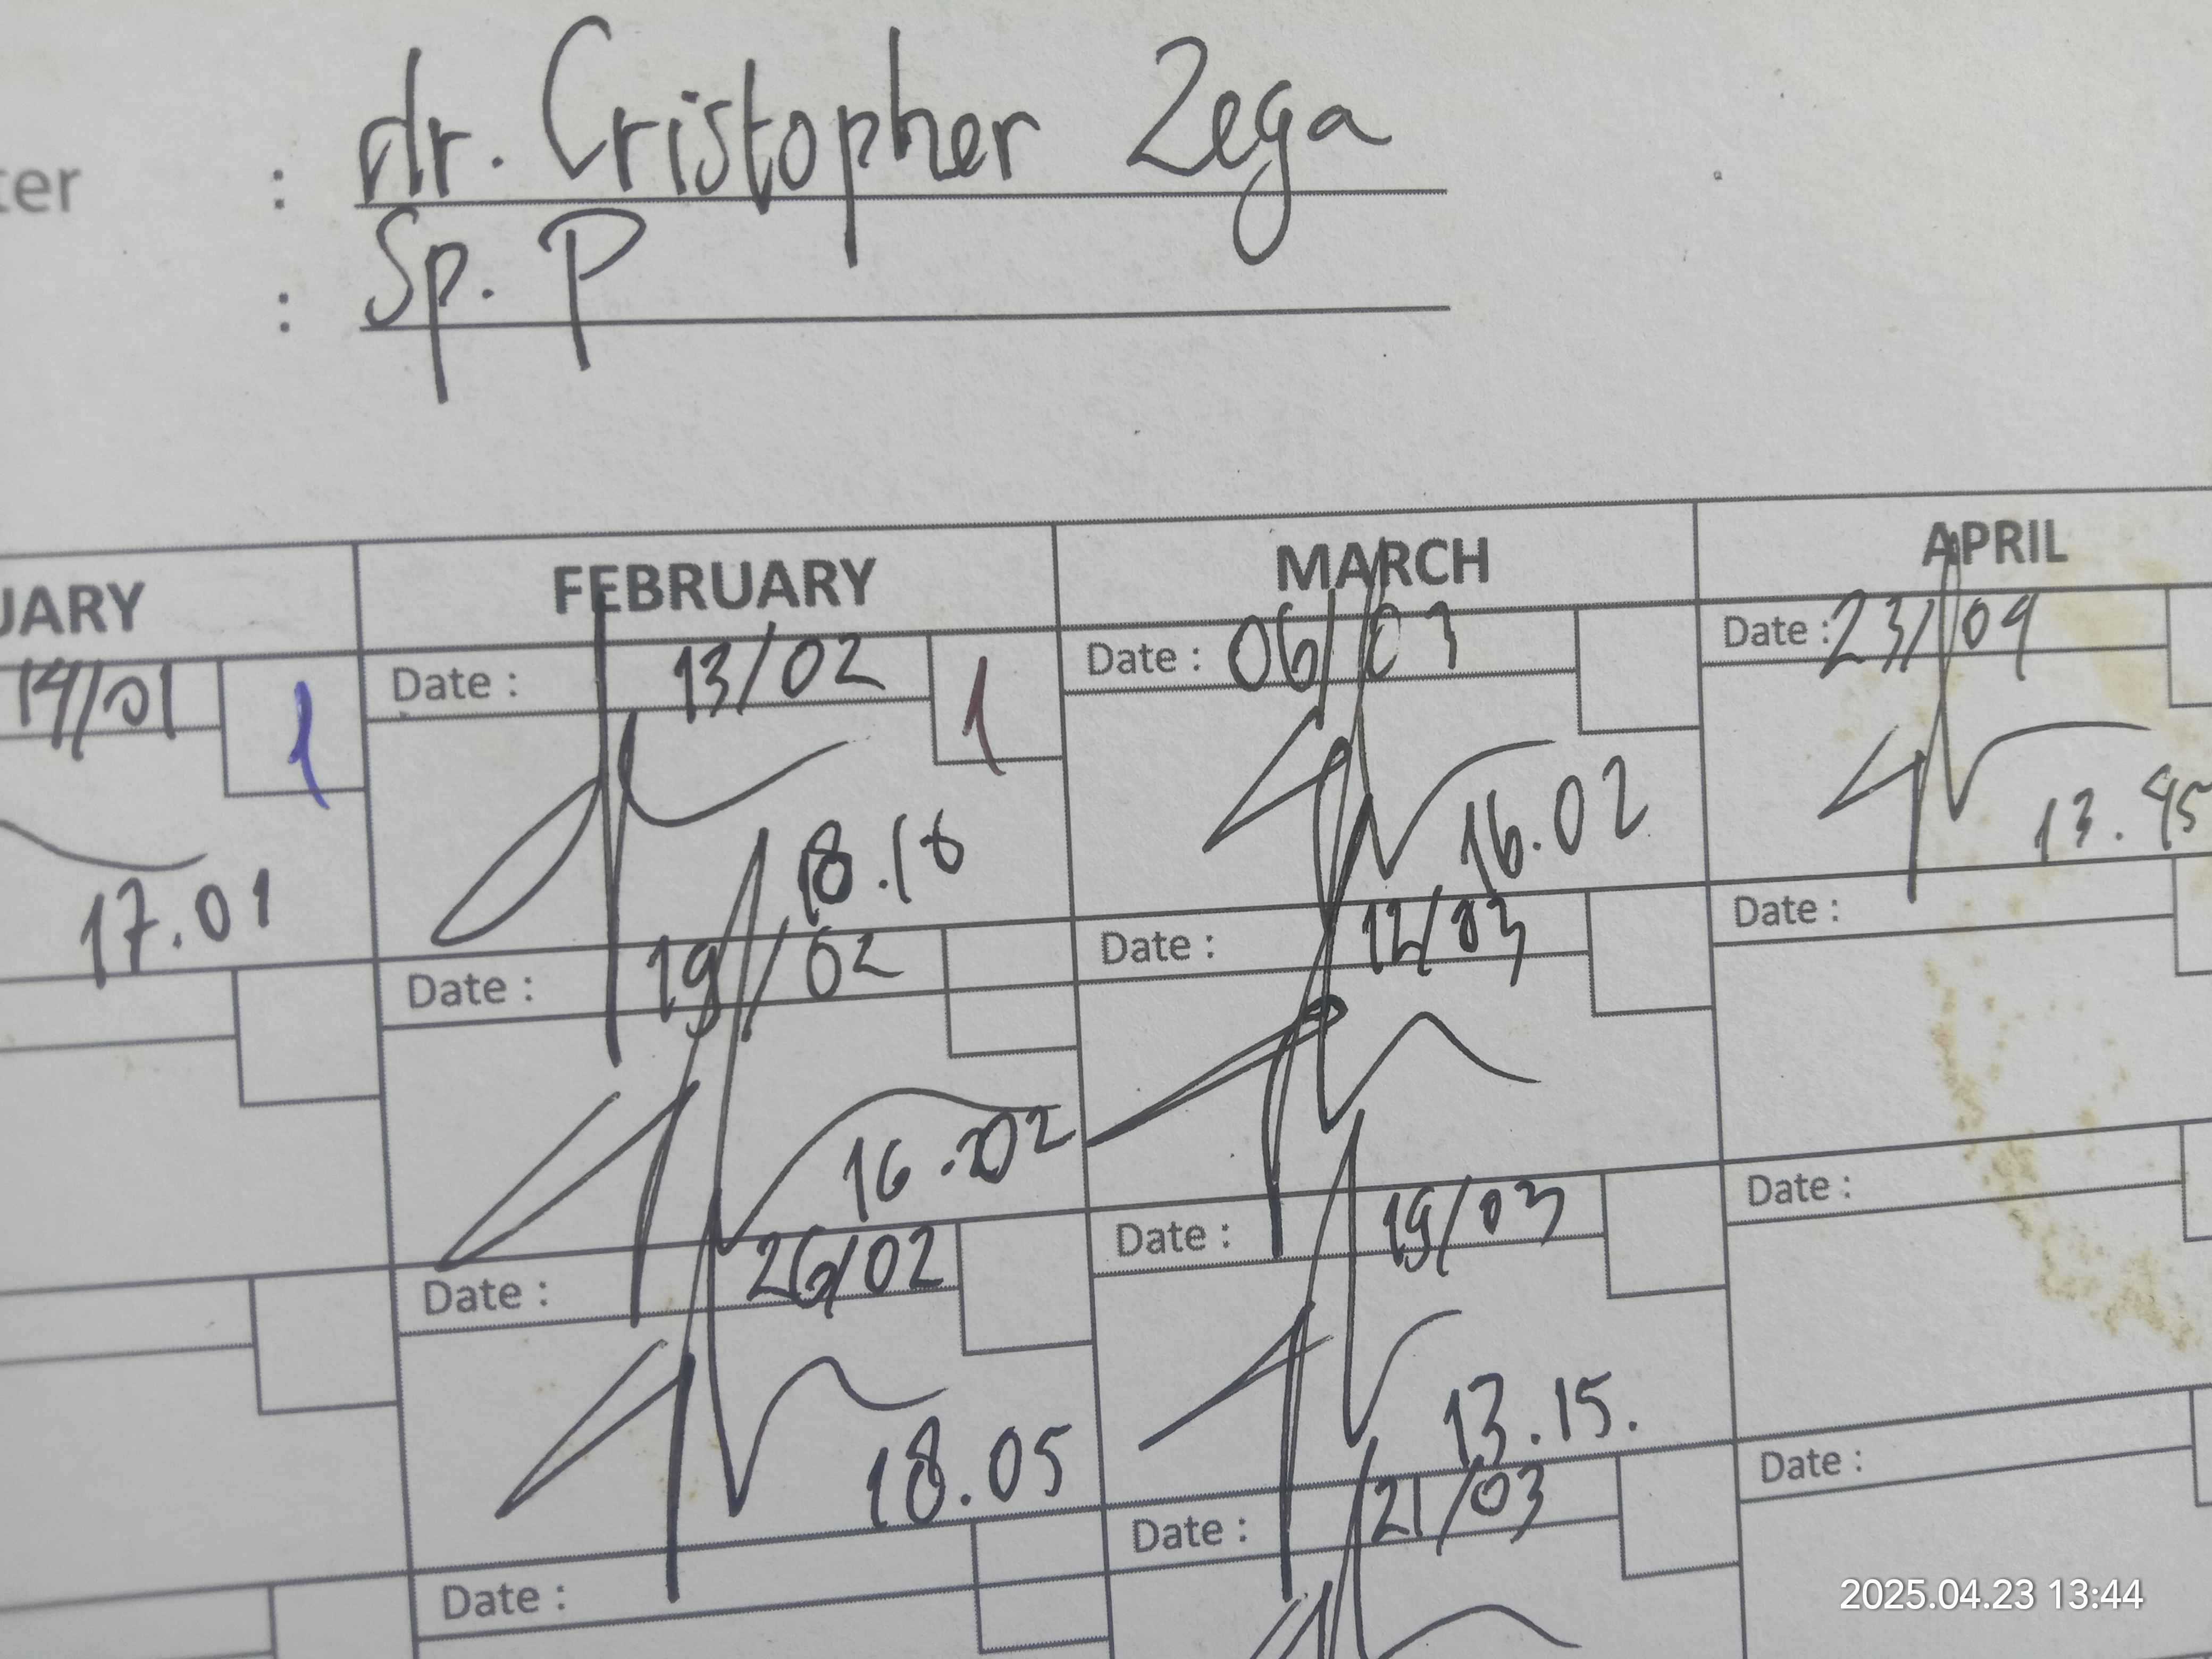 dr. Cristopher Zega
ter :
Sp. P
:
UARY FEBRUARY MARCH APRIL
14/01 1 Date : 13/02 1 Date : 06/03 Date : 23/04
17.01 18.18 16.02 13.45
Date : 19/02 Date : 12/03 Date :
16.02
Date : 26/02 Date : 19/03 Date :
18.05 13.15.
Date : Date : 21/03 Date :
2025.04.23 13:44